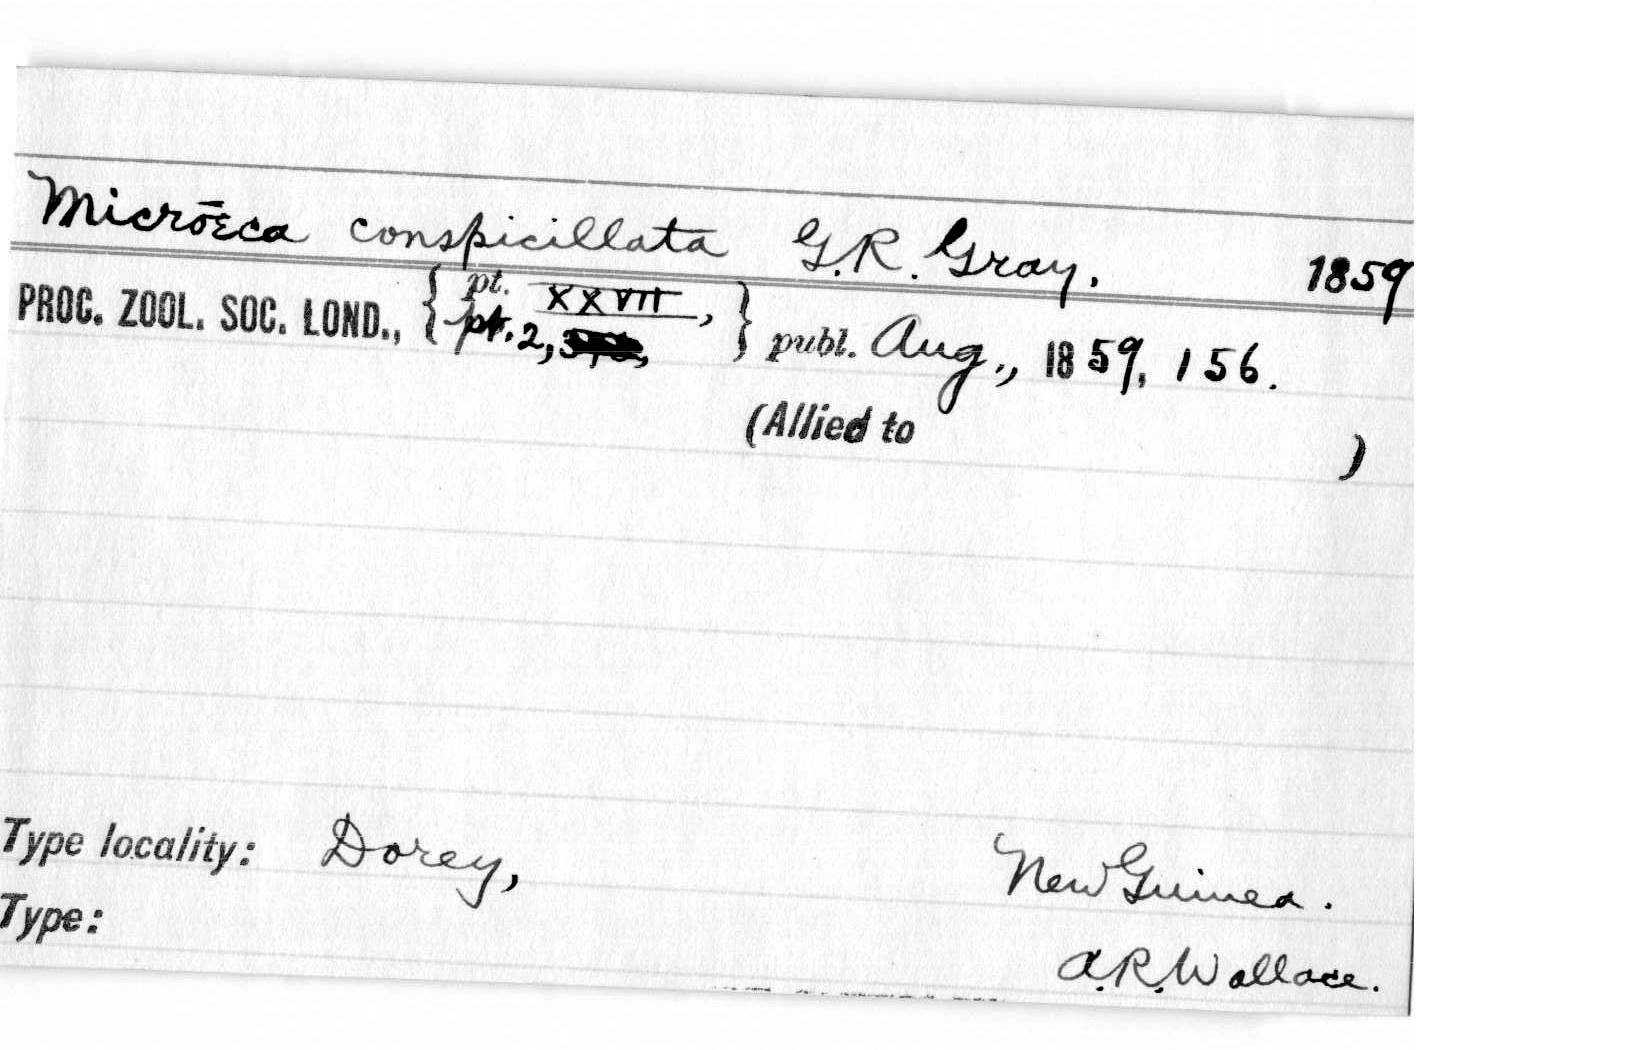 Microēca conspicillata G.R. Gray. 1859
PROC. ZOOL. SOC. LOND., { pt. XXVII, pt. 2, } publ. Aug., 1859, 156.
(Allied to )
Type locality: Dorey, New Guinea.
Type: A.R. Wallace.